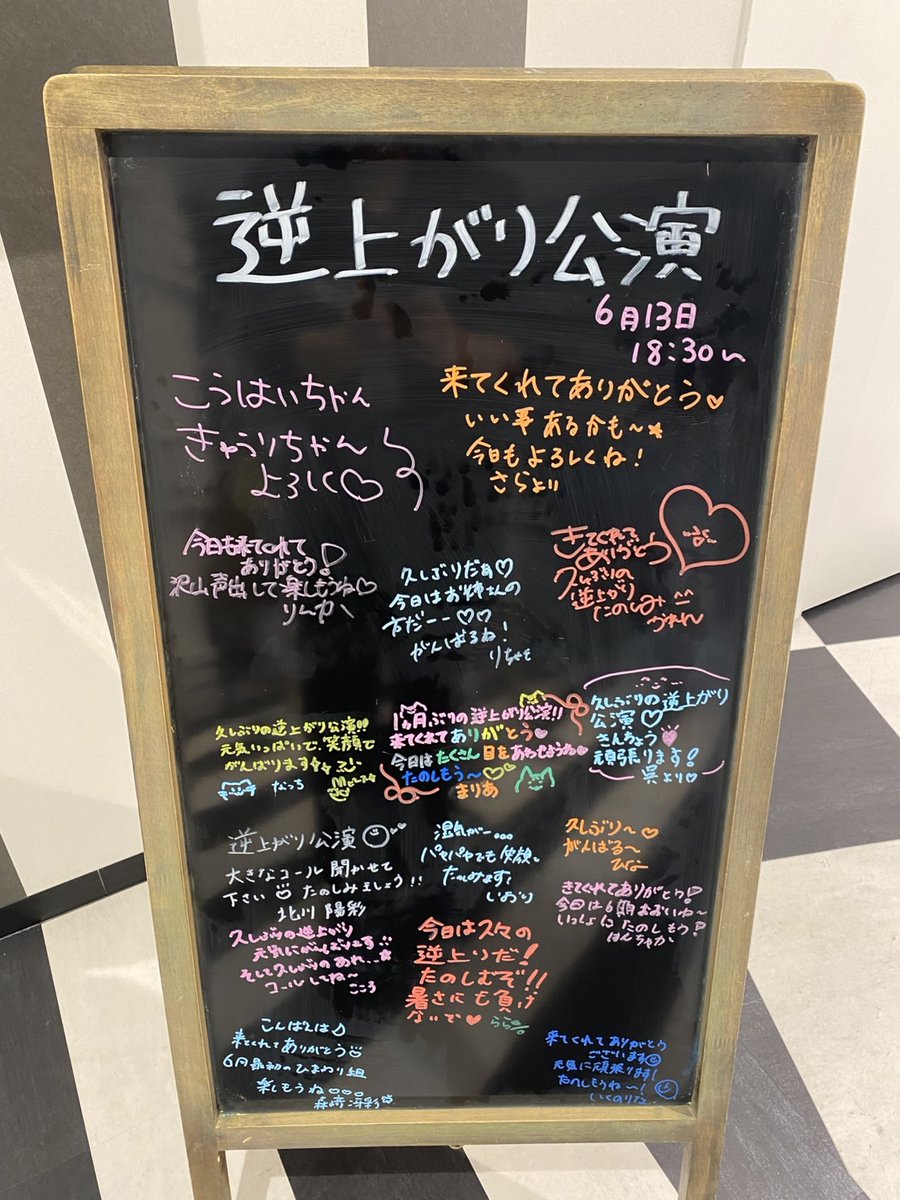 逆上がり公演
6月13日
18:30〜
こうはいちゃん
きゅうりちゃん
よろしく♡
来てくれてありがとう♡
いい事あるかも〜★
今日もよろしくね！
さらより
今日も来てくれて
ありがとう！
沢山声出して楽しもうね♡
りんか
久しぶりだね♡
今日はお姉さんの
方だーー♡♡
がんばるね！
きてくれて
ありがとう
久しぶりの
逆上がり
たのしみ^^
久しぶりの逆上がり公演!!
元気いっぱいで、笑顔で
がんばります
なっち
1ヶ月ぶりの逆上がり公演!!
来てくれてありがとう♡
今日はたくさん目をあわせようね♡
たのしもう〜♡♡
まりあ
久しぶりの逆上がり
公演♡
きんちょう
頑張ります！
呉より♡
逆上がり公演
大きなコール聞かせて
下さい たのしみましょう!!
北川 陽彩
湿気がー...
パヤパヤでも笑顔で
たのしみます！
いおり
久しぶり〜♡
がんばる〜
ひな
きてくれてありがとう！
今日は6期おおいね〜
いっしょにたのしもう！
はんちゃか
久しぶりの逆上がり
元気にがんばります
そして久しぶりのあれ...
コールしてね〜
こころ
今日は久々の
逆上りだ！
たのしむぞ!!
暑さにも負け
ないで♥
らら
こんばんは♪
来てくれてありがとう
6月最初のひまわり組
楽しもうね♡♡
森﨑冴彩
来てくれてありがとう
ございます
元気に頑張ります！
たのしもうね〜！
いくのりな